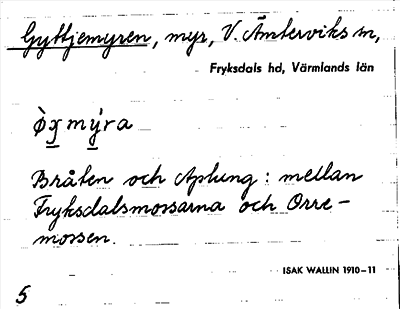 Gyttjemyren, myr, V. Ämterviks sn,
Fryksdals hd, Värmlands län
Bråten och Aplung : mellan
Fryksdalsmossarna och Orre-
mossen.
ISAK WALLIN 1910–11
5